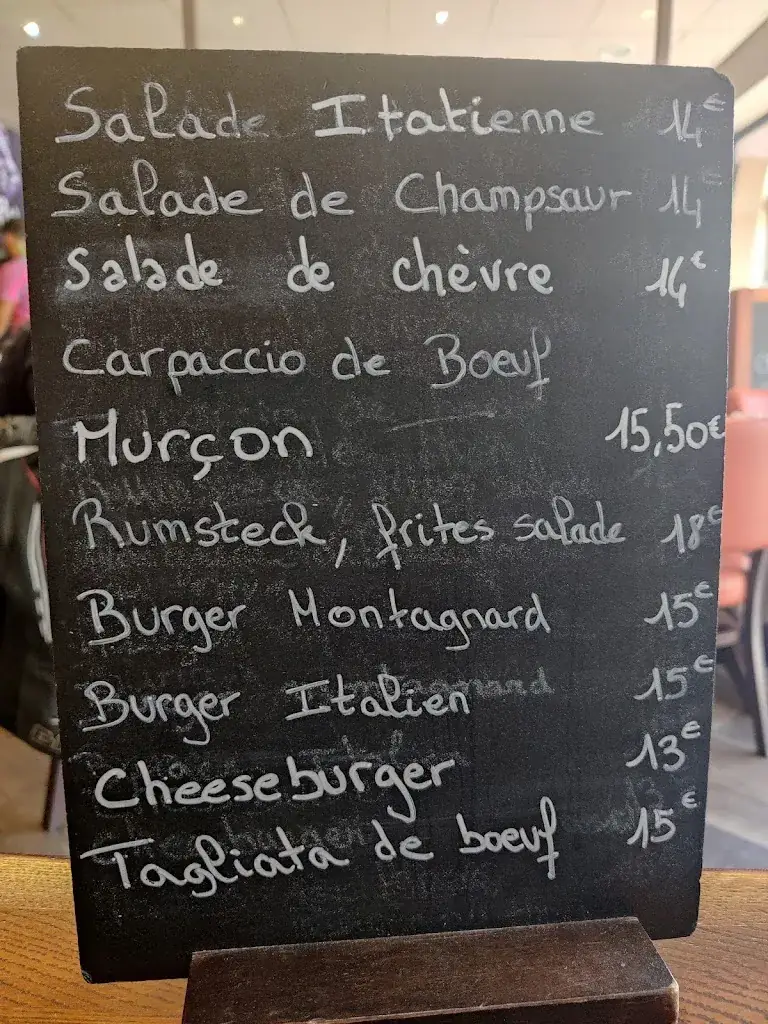 Salade Italienne 14€
Salade de Champsaur 14€
Salade de chèvre 14€
Carpaccio de Boeuf
Murçon 15,50€
Rumsteck, frites salade 18€
Burger Montagnard 15€
Burger Italien 15€
Cheeseburger 13€
Tagliata de boeuf 15€